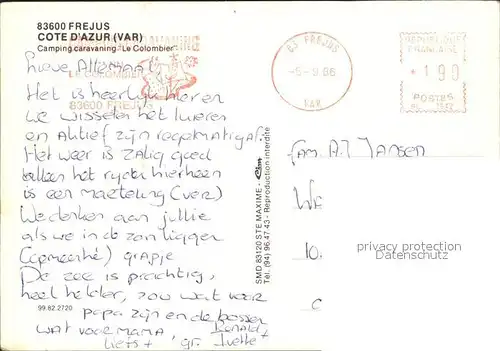 83600 FREJUS
COTE D'AZUR (VAR)
Camping caravaning "Le Colombier"
CARAVANING
LE COLOMBIER
83600 FREJUS
83 FREJUS
VAR
REPUBLIQUE
FRANCAISE
190
POSTES
Lieve Allemaal,
Het is heerlijk hier en
we wisselen het luieren
en Aktief zijn regelmatig af.
Het weer is zalig goed
alleen het rijden hierheen
is een marteling (ver)
We denken aan jullie
als we in de zon liggen
(gemeen hé) grapje
De zee is prachtig,
heel helder, zou wat voor
papa zijn en de bossen
wat voor mama
Ronald +
liefs + gr. Ivette
99.62.2720
SMD 83120 STE MAXIME - Cim
Tél. (94) 96.47.43 - Reproduction interdite
fam. A.J. Jansen
10
privacy protection
VEIKKOS